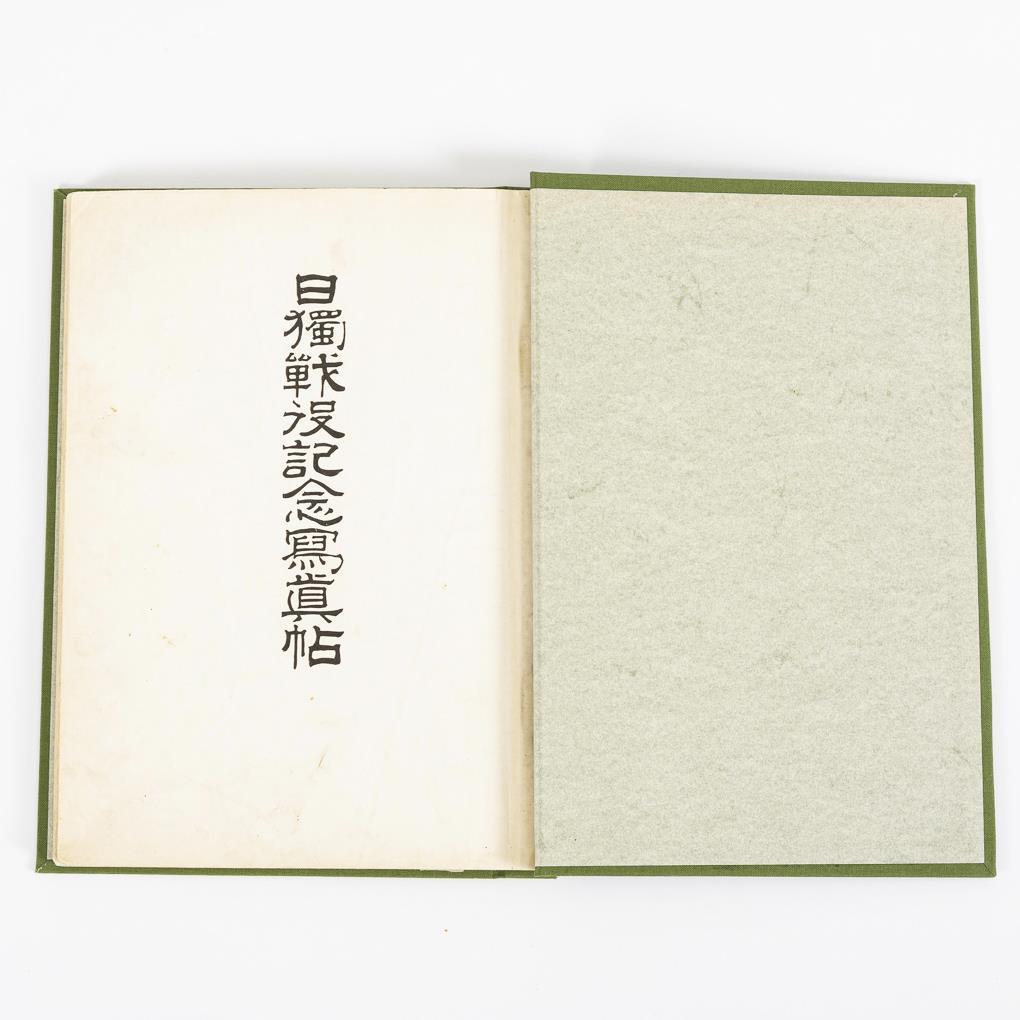 日獨戰役記念寫眞帖